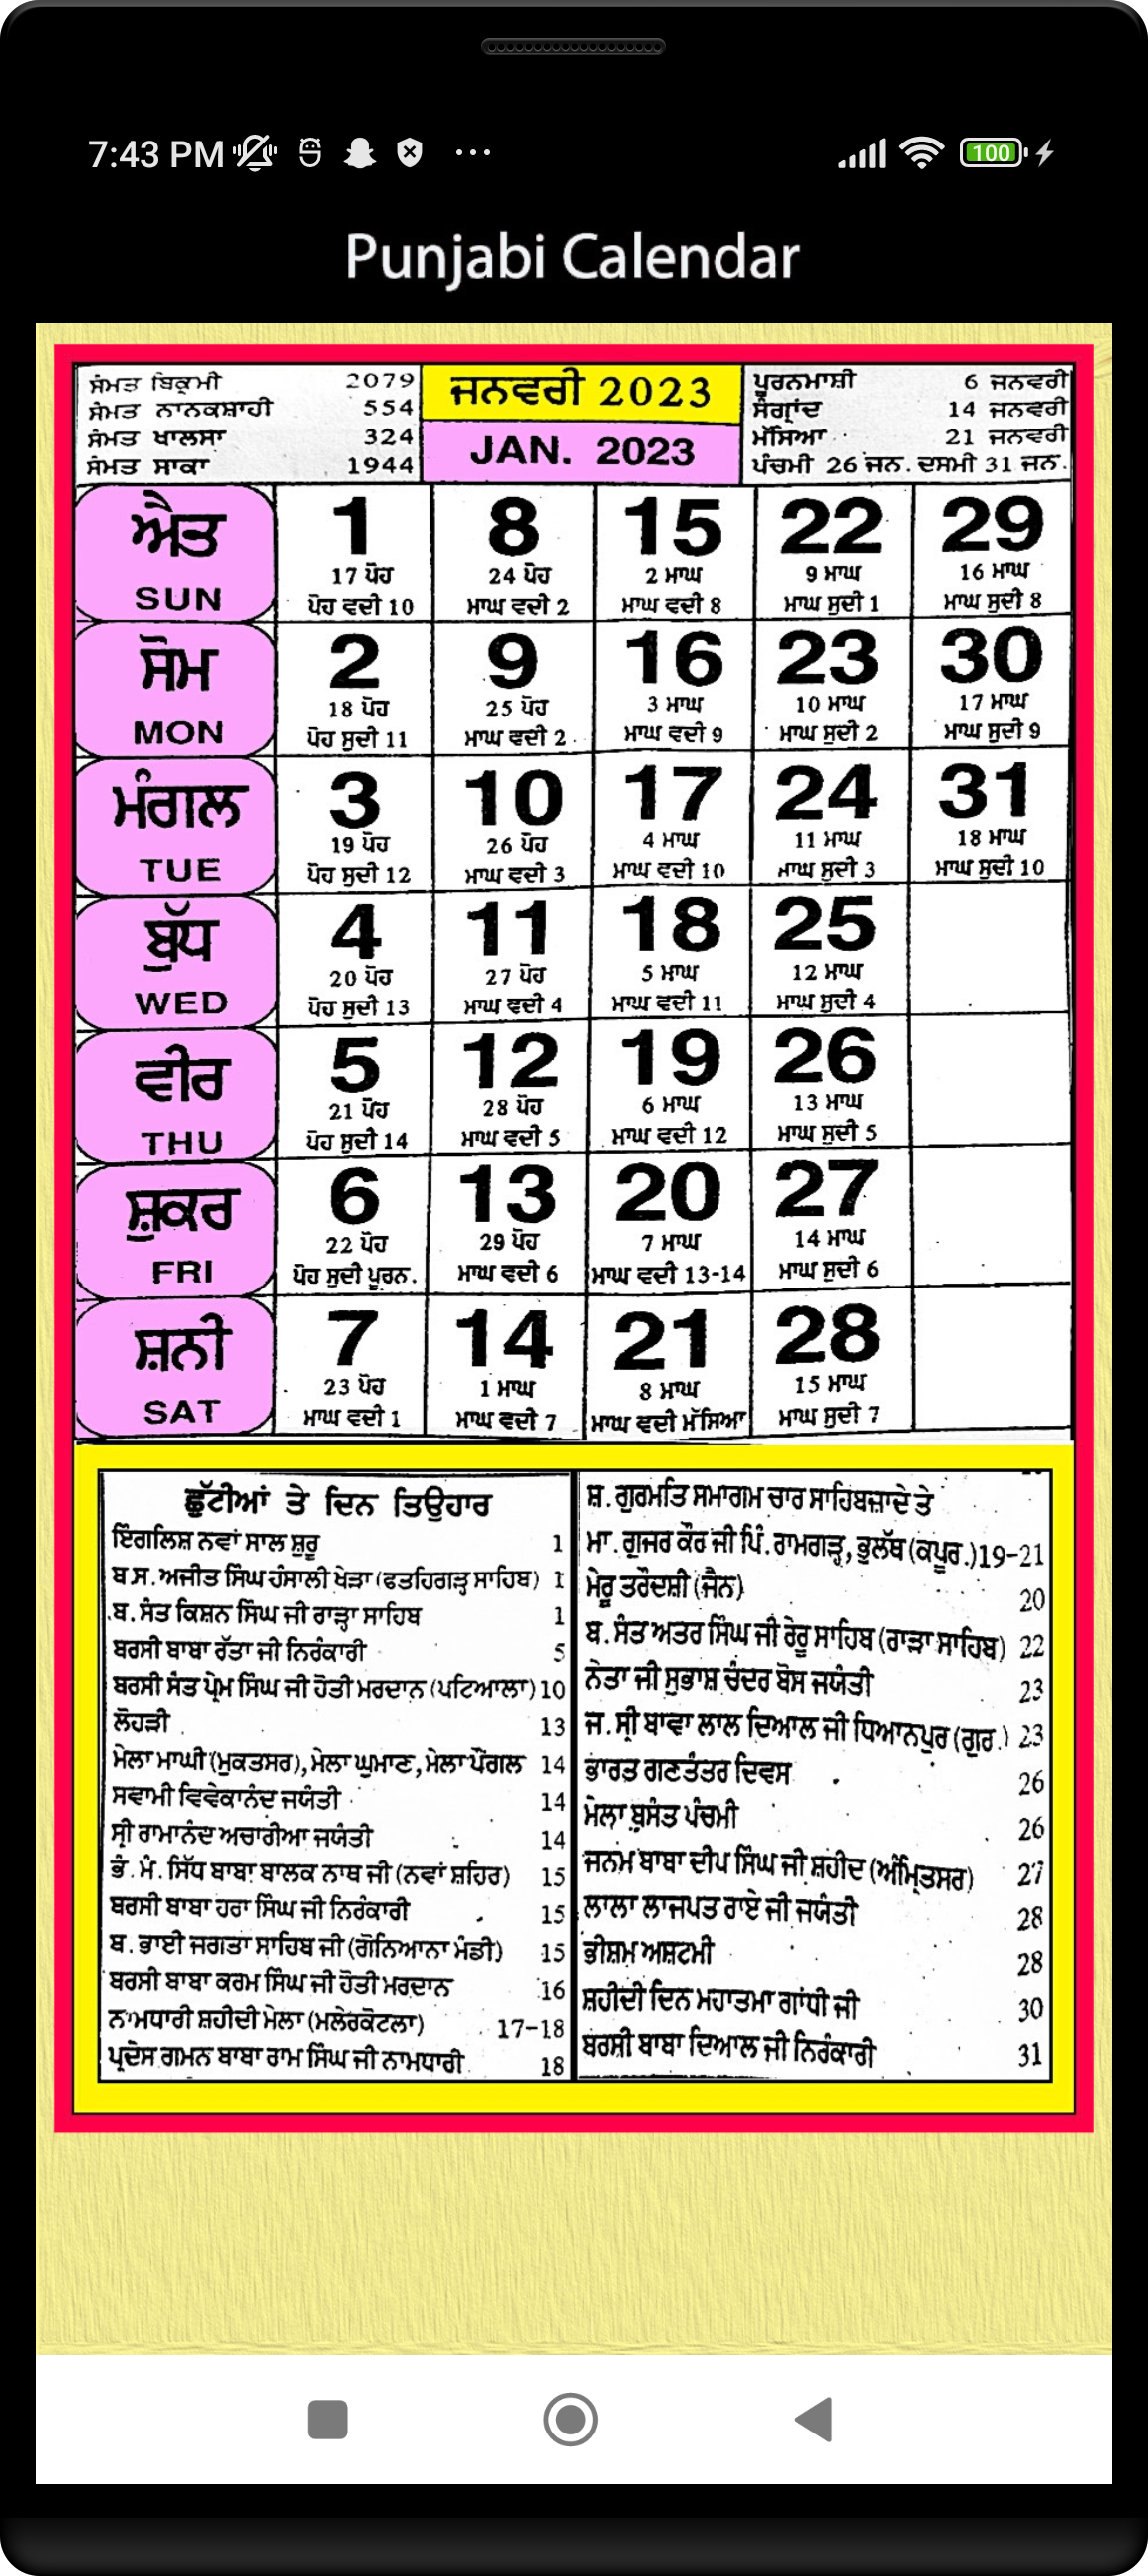 7:43 PM
100
Punjabi Calendar
ਸੰਮਤ ਬਿਕ੍ਰਮੀ 2079
ਸੰਮਤ ਨਾਨਕਸ਼ਾਹੀ 554
ਸੰਮਤ ਖਾਲਸਾ 324
ਸੰਮਤ ਸਾਕਾ 1944
ਜਨਵਰੀ 2023
JAN. 2023
ਪੂਰਨਮਾਸ਼ੀ 6 ਜਨਵਰੀ
ਸੰਗ੍ਰਾਂਦ 14 ਜਨਵਰੀ
ਮੱਸਿਆ 21 ਜਨਵਰੀ
ਪੰਚਮੀ 26 ਜਨ. ਦਸਮੀ 31 ਜਨ.
ਐਤ 1 8 15 22 29
17 ਪੋਹ 24 ਪੋਹ 2 ਮਾਘ 9 ਮਾਘ 16 ਮਾਘ
SUN ਪੋਹ ਵਦੀ 10 ਮਾਘ ਵਦੀ 2 ਮਾਘ ਵਦੀ 8 ਮਾਘ ਸੁਦੀ 1 ਮਾਘ ਸੁਦੀ 8
ਸੋਮ 2 9 16 23 30
18 ਪੋਹ 25 ਪੋਹ 3 ਮਾਘ 10 ਮਾਘ 17 ਮਾਘ
MON ਪੋਹ ਸੁਦੀ 11 ਮਾਘ ਵਦੀ 2 ਮਾਘ ਵਦੀ 9 ਮਾਘ ਸੁਦੀ 2 ਮਾਘ ਸੁਦੀ 9
ਮੰਗਲ 3 10 17 24 31
19 ਪੋਹ 26 ਪੋਹ 4 ਮਾਘ 11 ਮਾਘ 18 ਮਾਘ
TUE ਪੋਹ ਸੁਦੀ 12 ਮਾਘ ਵਦੀ 3 ਮਾਘ ਵਦੀ 10 ਮਾਘ ਸੁਦੀ 3 ਮਾਘ ਸੁਦੀ 10
ਬੁੱਧ 4 11 18 25
20 ਪੋਹ 27 ਪੋਹ 5 ਮਾਘ 12 ਮਾਘ
WED ਪੋਹ ਸੁਦੀ 13 ਮਾਘ ਵਦੀ 4 ਮਾਘ ਵਦੀ 11 ਮਾਘ ਸੁਦੀ 4
ਵੀਰ 5 12 19 26
21 ਪੋਹ 28 ਪੋਹ 6 ਮਾਘ 13 ਮਾਘ
THU ਪੋਹ ਸੁਦੀ 14 ਮਾਘ ਵਦੀ 5 ਮਾਘ ਵਦੀ 12 ਮਾਘ ਸੁਦੀ 5
ਸ਼ੁਕਰ 6 13 20 27
22 ਪੋਹ 29 ਪੋਹ 7 ਮਾਘ 14 ਮਾਘ
FRI ਪੋਹ ਸੁਦੀ ਪੂਰਨ. ਮਾਘ ਵਦੀ 6 ਮਾਘ ਵਦੀ 13-14 ਮਾਘ ਸੁਦੀ 6
ਸ਼ਨੀ 7 14 21 28
23 ਪੋਹ 1 ਮਾਘ 8 ਮਾਘ 15 ਮਾਘ
SAT ਮਾਘ ਵਦੀ 1 ਮਾਘ ਵਦੀ 7 ਮਾਘ ਵਦੀ ਮੱਸਿਆ ਮਾਘ ਸੁਦੀ 7
ਛੁੱਟੀਆਂ ਤੇ ਦਿਨ ਤਿਉਹਾਰ
ਇੰਗਲਿਸ਼ ਨਵਾਂ ਸਾਲ ਸ਼ੁਰੂ 1
ਬ.ਸ. ਅਜੀਤ ਸਿੰਘ ਹੰਸਾਲੀ ਖੇੜਾ (ਫਤਹਿਗੜ੍ਹ ਸਾਹਿਬ) 1
ਬ. ਸੰਤ ਕਿਸ਼ਨ ਸਿੰਘ ਜੀ ਰਾੜਾ ਸਾਹਿਬ 1
ਬਰਸੀ ਬਾਬਾ ਰੱਤਾ ਜੀ ਨਿਰੰਕਾਰੀ 5
ਬਰਸੀ ਸੰਤ ਪ੍ਰੇਮ ਸਿੰਘ ਜੀ ਹੋਤੀ ਮਰਦਾਨ (ਪਟਿਆਲਾ) 10
ਲੋਹੜੀ 13
ਮੇਲਾ ਮਾਘੀ (ਮੁਕਤਸਰ), ਮੇਲਾ ਘੁਮਾਣ, ਮੇਲਾ ਪੌਂਗਲ 14
ਸਵਾਮੀ ਵਿਵੇਕਾਨੰਦ ਜਯੰਤੀ 14
ਸ੍ਰੀ ਰਾਮਾਨੰਦ ਅਚਾਰੀਆ ਜਯੰਤੀ 14
ਭੰ. ਮੰ. ਸਿੱਧ ਬਾਬਾ ਬਾਲਕ ਨਾਥ ਜੀ (ਨਵਾਂ ਸ਼ਹਿਰ) 15
ਬਰਸੀ ਬਾਬਾ ਹਰਾ ਸਿੰਘ ਜੀ ਨਿਰੰਕਾਰੀ 15
ਬ. ਭਾਈ ਜਗਤਾ ਸਾਹਿਬ ਜੀ (ਗੋਨਿਆਨਾ ਮੰਡੀ) 15
ਬਰਸੀ ਬਾਬਾ ਕਰਮ ਸਿੰਘ ਜੀ ਹੋਤੀ ਮਰਦਾਨ 16
ਨਾਮਧਾਰੀ ਸ਼ਹੀਦੀ ਮੇਲਾ (ਮਲੇਰਕੋਟਲਾ) 17-18
ਪ੍ਰਦੇਸ ਗਮਨ ਬਾਬਾ ਰਾਮ ਸਿੰਘ ਜੀ ਨਾਮਧਾਰੀ 18
ਸ਼. ਗੁਰਮਤਿ ਸਮਾਗਮ ਚਾਰ ਸਾਹਿਬਜ਼ਾਦੇ ਤੇ
ਮਾ. ਗੁਜਰ ਕੌਰ ਜੀ ਪਿੰ. ਰਾਮਗੜ੍ਹ, ਭੁਲੱਥ (ਕਪੂਰ.) 19-21
ਮੇਰੂ ਤਰੌਦਸ਼ੀ (ਜੈਨ) 20
ਬ. ਸੰਤ ਅਤਰ ਸਿੰਘ ਜੀ ਰੇਰੂ ਸਾਹਿਬ (ਰਾੜਾ ਸਾਹਿਬ) 22
ਨੇਤਾ ਜੀ ਸੁਭਾਸ਼ ਚੰਦਰ ਬੋਸ ਜਯੰਤੀ 23
ਜ. ਸ੍ਰੀ ਬਾਵਾ ਲਾਲ ਦਿਆਲ ਜੀ ਧਿਆਨਪੁਰ (ਗੁਰ.) 23
ਭਾਰਤ ਗਣਤੰਤਰ ਦਿਵਸ 26
ਮੇਲਾ ਬਸੰਤ ਪੰਚਮੀ 26
ਜਨਮ ਬਾਬਾ ਦੀਪ ਸਿੰਘ ਜੀ ਸ਼ਹੀਦ (ਅੰਮ੍ਰਿਤਸਰ) 27
ਲਾਲਾ ਲਾਜਪਤ ਰਾਏ ਜੀ ਜਯੰਤੀ 28
ਭੀਸ਼ਮ ਅਸ਼ਟਮੀ 28
ਸ਼ਹੀਦੀ ਦਿਨ ਮਹਾਤਮਾ ਗਾਂਧੀ ਜੀ 30
ਬਰਸੀ ਬਾਬਾ ਦਿਆਲ ਜੀ ਨਿਰੰਕਾਰੀ 31